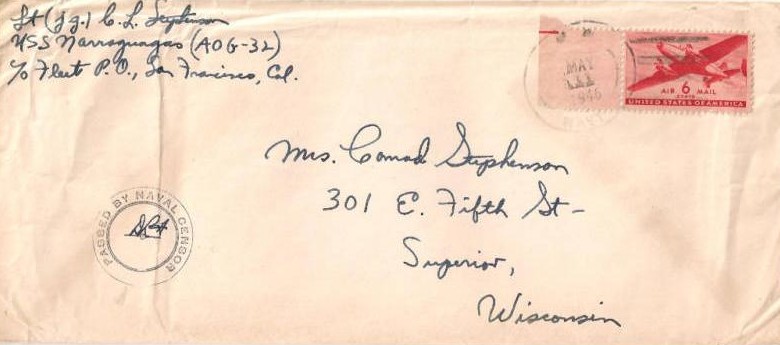 Lt (jg.) C. L. Stephenson
USS Narraguagas (AOG-32)
c/o Fleet P. O., San Francisco, Cal.
MAY
1945
AIR 6 MAIL
CENTS
UNITED STATES OF AMERICA
Mrs. Conrad Stephenson
301 E. Fifth St-
Superior,
Wisconsin
PASSED BY NAVAL CENSOR